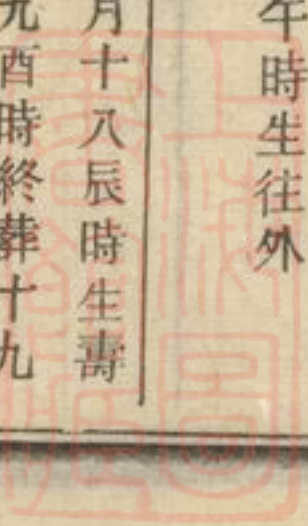 午時生往外
月十八辰時生壽
九酉時終葬十九